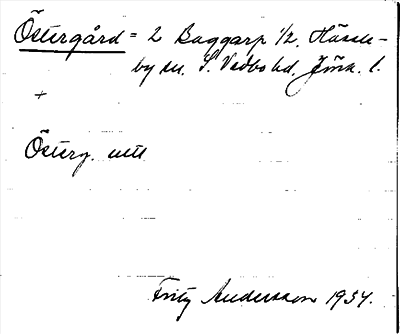 Östergård = 2 Baggarp 1/2, Hässle-
by sn. S. Vedbo hd, Jönk. l.
+
Österg. utt
Fritz Andersson 1934.